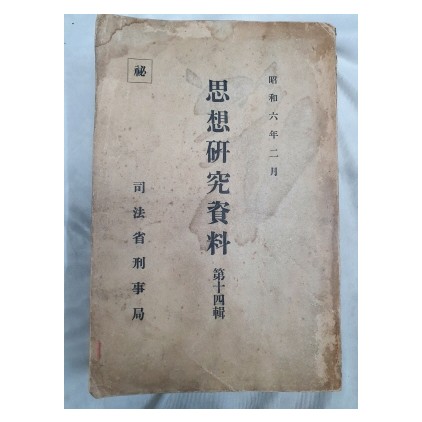 昭和六年二月
思想研究資料 第十四輯
司法省刑事局
祕